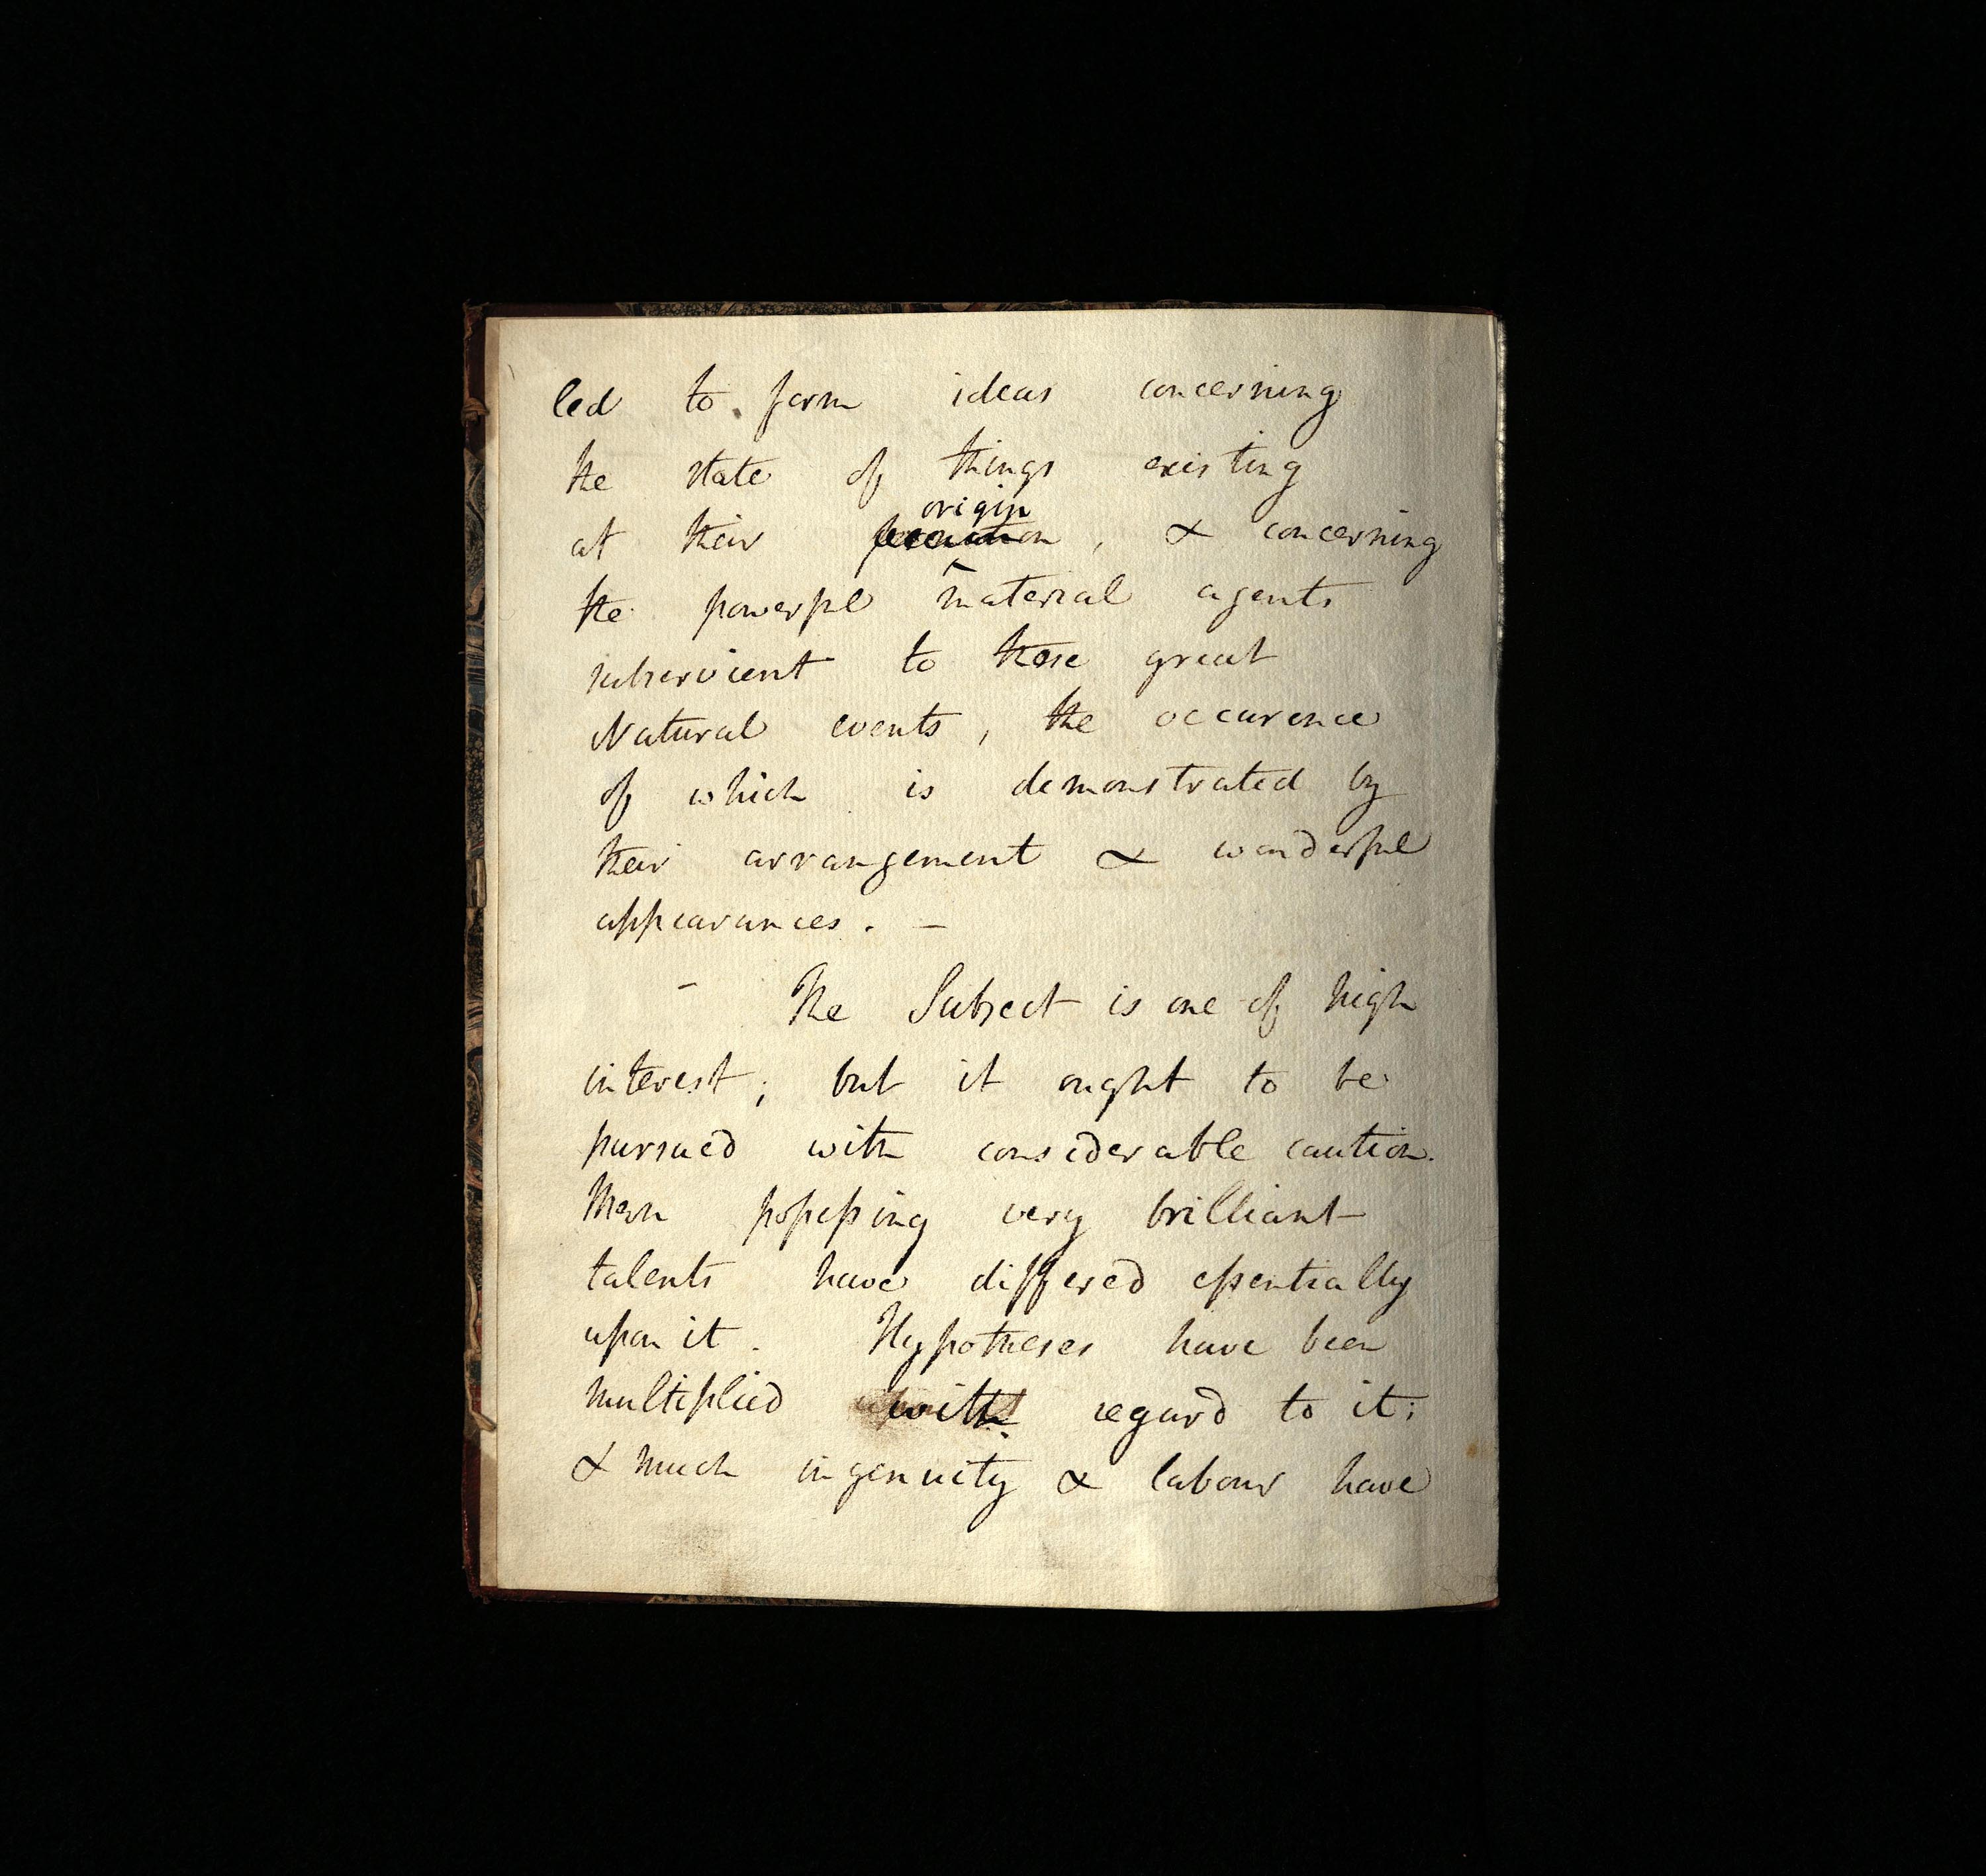 led to form ideas concerning
the state of things existing
origin
at their formation, & concerning
the powerful material agents
subservient to these great
Natural events, the occurence
of which is demonstrated by
their arrangement & wonderful
appearances. —
– The Subject is one of high
interest; but it ought to be
pursued with considerable caution.
Men possessing very brilliant
talents have differed essentially
upon it. Hypotheses have been
multiplied with regard to it;
& much ingenuity & labour have